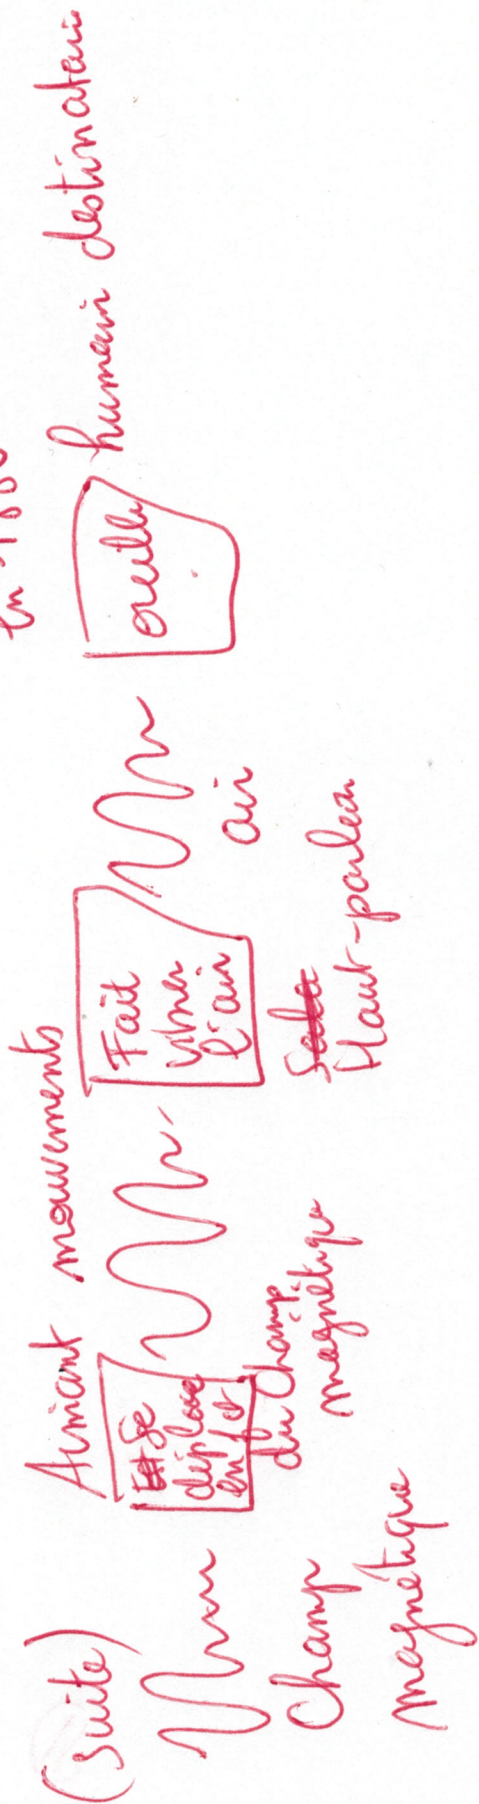 (suite)
Champ
magnétique
Aimant
Se
déplace
en f ct
du champ
magnétique
mouvements
Fait
vibrer
l'air
Haut-parleur
air
oreille
humain destinataire